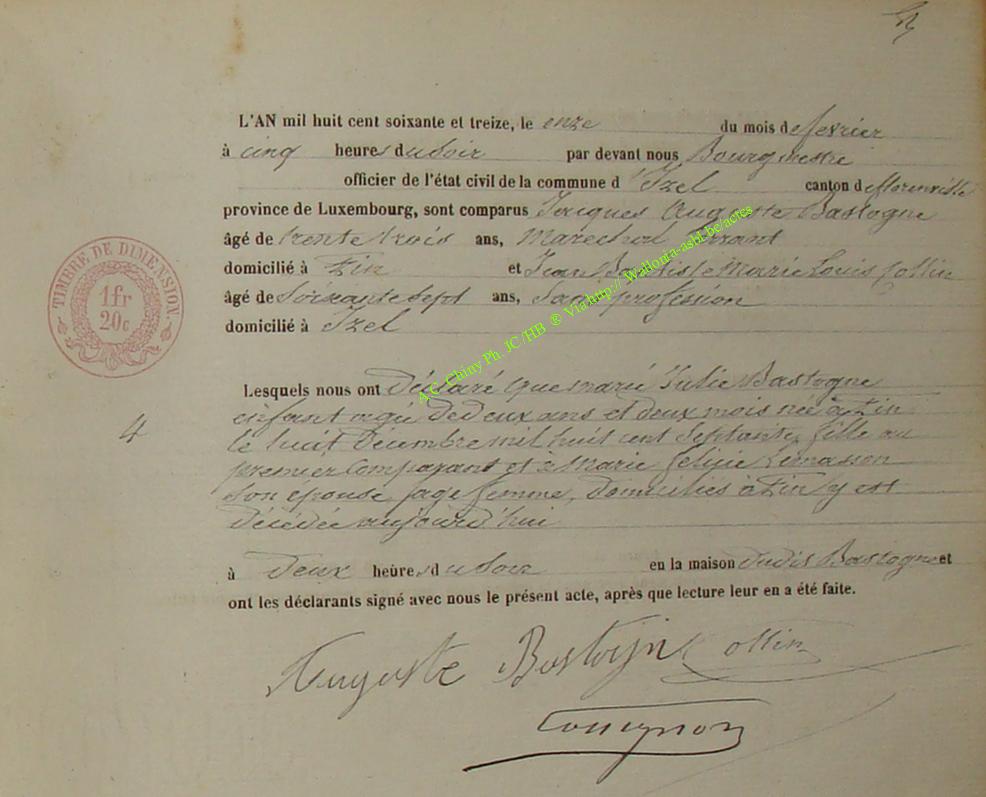 L'AN mil huit cent soixante et treize, le onze du mois de fevrier
à cinq heures du Soir par devant nous Bourgmestre
officier de l'état civil de la commune d'Izel canton de florenville
province de Luxembourg, sont comparus Jacques Auguste Bastogne
âgé de trente trois ans, Marechal Ferrant
domicilié à Pin et Jean Baptiste Marie Louis Collin
âgé de Soixante Sept ans, Sans profession
domicilié à Izel
TIMBRE DE DIMENSION.
1fr
20c
A.G. Chiny Ph. JC /HB ® Via http:// Wallonia-asbl-be/actes
Lesquels nous ont déclaré que marie Julie Bastogne
enfant agée de deux ans et deux mois née à Pin
4
le huit Decembre mil huit cent Septante, fille au
premier Comparant et à Marie felicie Lemasson
Son épouse sage femme, domiciliés à Pin y est
décédée aujourd'hui
à Deux heures du Soir en la maison dudit Bastogne et
ont les déclarants signé avec nous le présent acte, après que lecture leur en a été faite.
Auguste Bastogne Collin